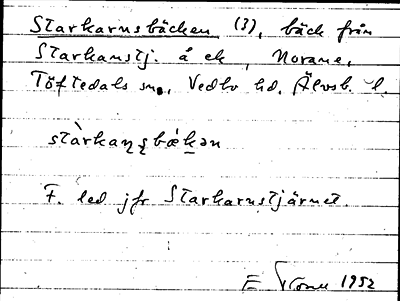 Starkarnsbäcken (3), bäck från
Starkarnstj. å ek, Norane,
Töftedals sn., Vedbo hd. Älvsb. l.
stàrkaɳʂbækən
F. led jfr Starkarnstjärnet.
E 1952